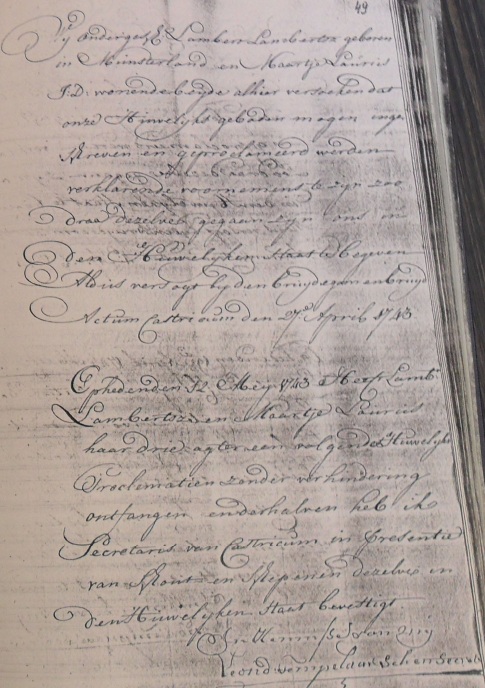 49
Wij ondergesz: Lambert Lambertsz geboren
in Munsterland en Maartje Lauris
J.D: wonende beijde alhier versoeken dat
onze Huwelijks geboden mogen inge
schreven en geproclameerd worden
verklarende voornemens te zijn zoo
dra dezelve gegaan zijn ons in
den Huwelijken Staat te begeven
Aldus versogt bij den bruijdegom en bruijd
Actum Castricum den 27e April 1743
Op heden den 12 Meij 1743 Heeft Lambt
Lambertsz en Maartje Lauris
haar drie agter een volgende Huwelijks
Proclamatien zonder verhindering
ontfangen en derhalven heb ik
Secretaris van Castricum in presentie
van Schout en Schepenen dezelve in
den Huwelijken Staat bevestigt
In kennisse van mij
Secrets